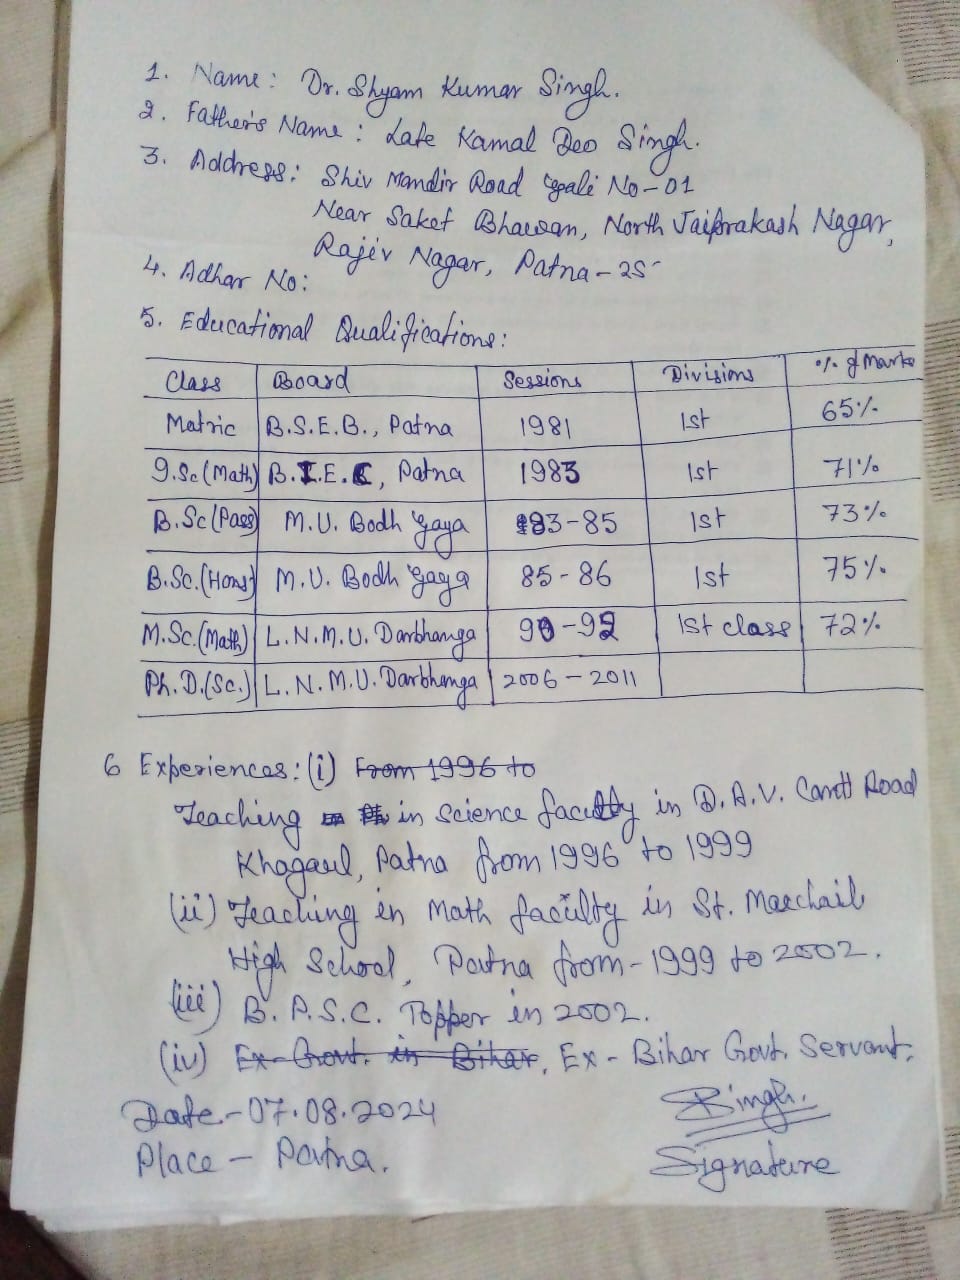 1. Name: Dr. Shyam Kumar Singh.
2. Father's Name: Late Kamal Deo Singh.
3. Address: Shiv Mandir Road gali No-01
Near Saket Bhawan, North Jaiprakash Nagar,
Rajiv Nagar, Patna-25
4. Adhar No:
5. Educational Qualifications:
Class Board Sessions Divisions % of Marks
Matric B.S.E.B., Patna 1981 1st 65%
I.Sc (Math) B.I.E.C, Patna 1983 1st 71%
B.Sc (Pass) M.U. Bodh Gaya 83-85 1st 73%
B.Sc. (Hons) M.U. Bodh Gaya 85-86 1st 75%
M.Sc. (Math) L.N.M.U. Darbhanga 90-92 1st class 72%
Ph.D. (Sc.) L.N.M.U. Darbhanga 2006-2011
6 Experiences: (i) From 1996 to
Teaching in science faculty in D.A.V. Cantt Road
Khagaul, Patna from 1996 to 1999
(ii) Teaching in Math faculty in St. High School, Patna from-1999 to 2002.
(iii) B.P.S.C. Topper in 2002.
(iv) Ex-Govt. in Bihar, Ex-Bihar Govt. Servant.
Date-07.08.2024 Singh.
Place-Patna. Signature